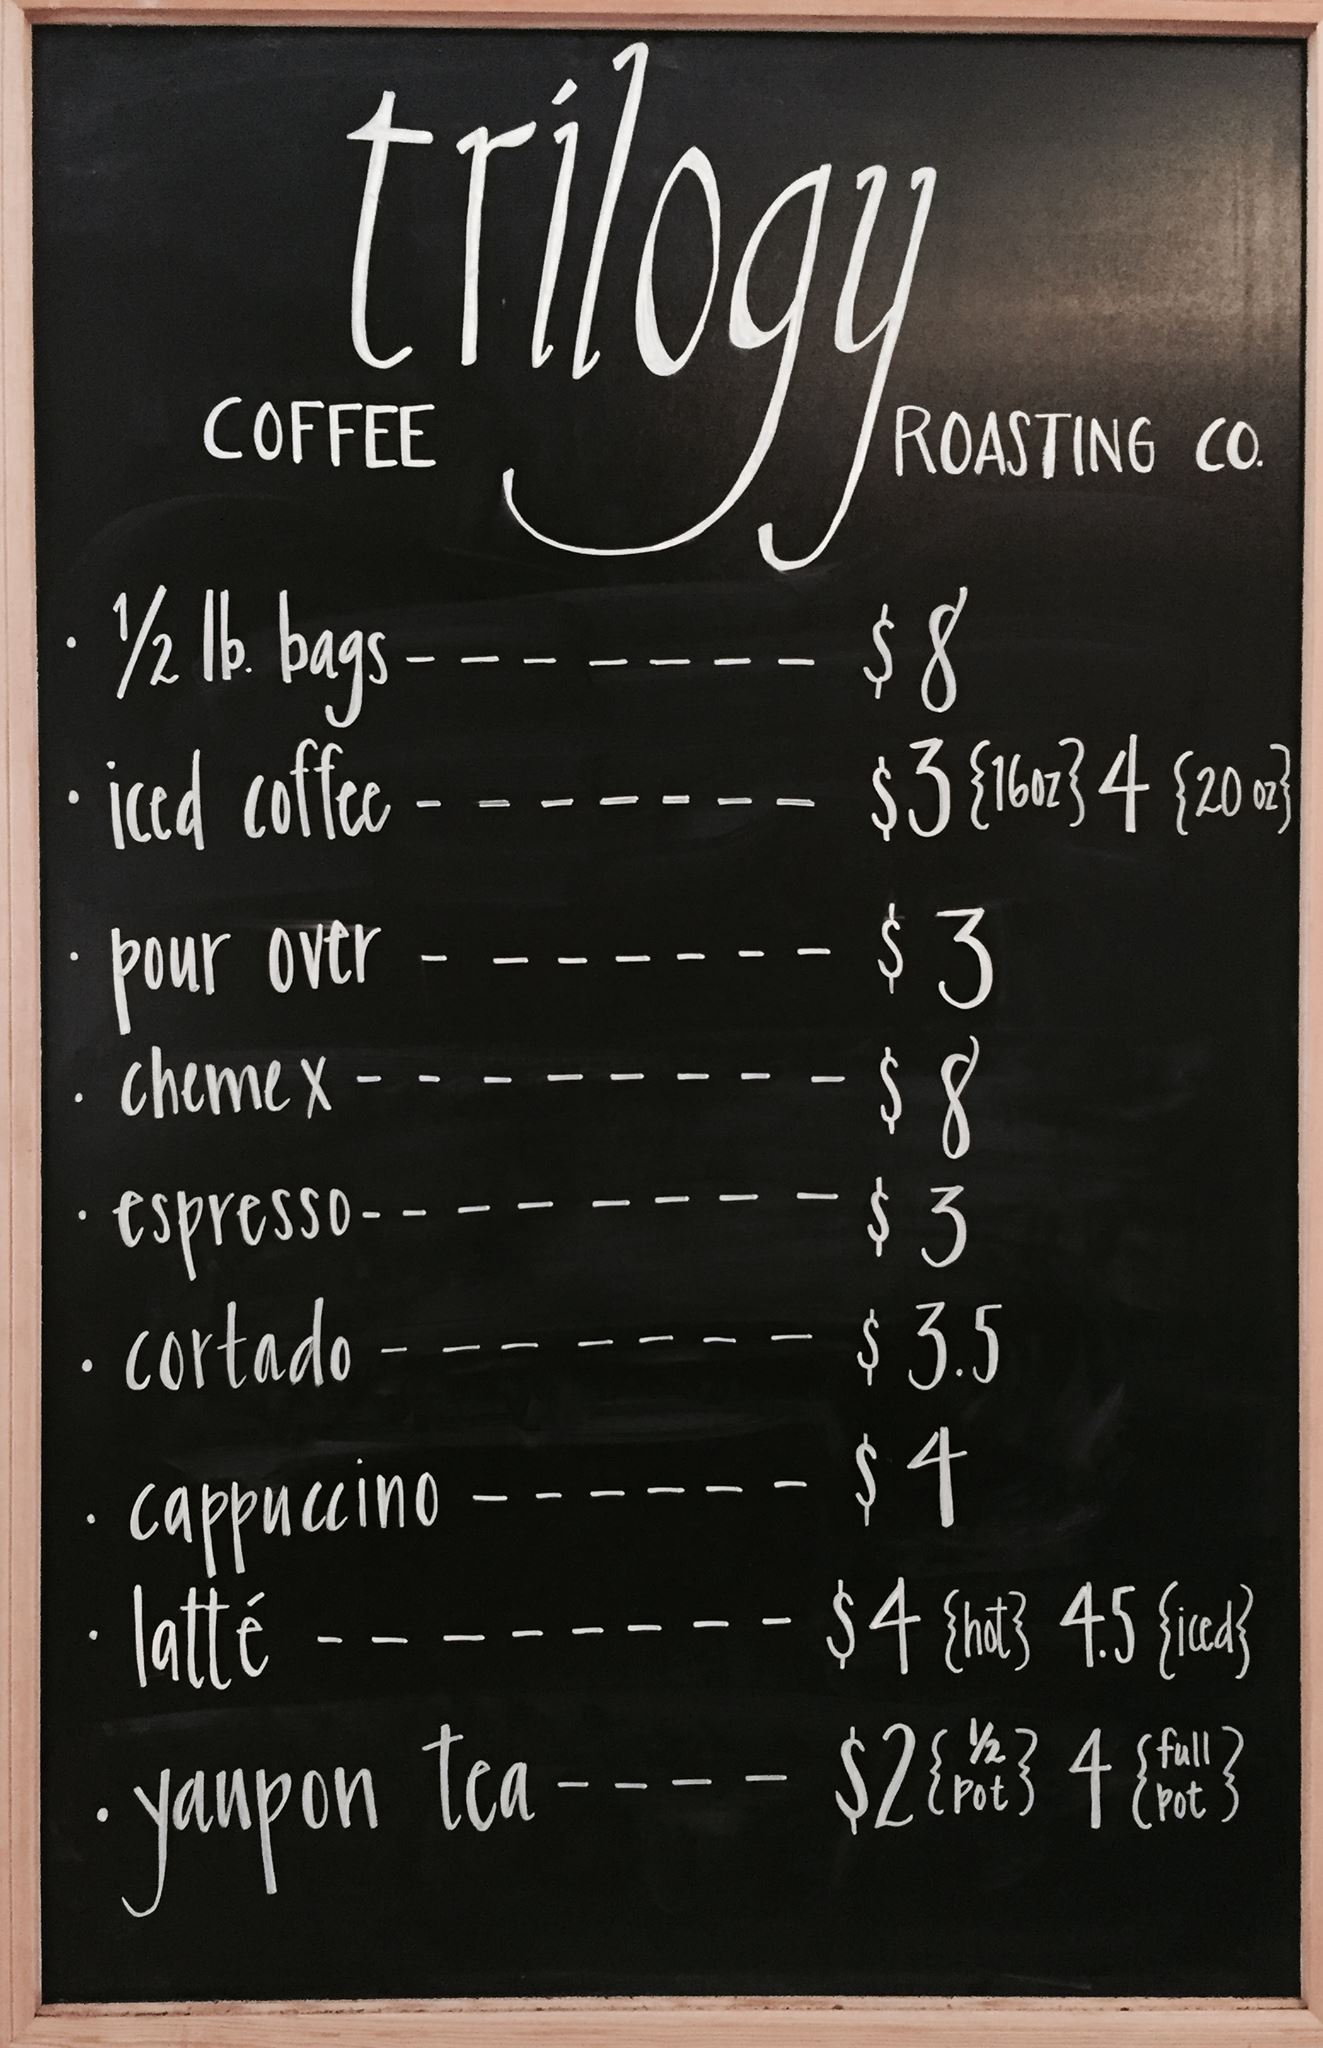 trilogy
COFFEE ROASTING CO.
· 1/2 lb. bags - - - - - - - $ 8
· iced coffee - - - - - - - $3 {16oz} 4 {20 oz}
· pour over - - - - - - - $ 3
· chemex - - - - - - - - $ 8
· espresso - - - - - - - - $ 3
· cortado - - - - - - - $ 3.5
· cappuccino - - - - - - $ 4
· latté - - - - - - - - $4 {hot} 4.5 {iced}
· yaupon tea - - - - $2 {1/2 pot} 4 {full pot}